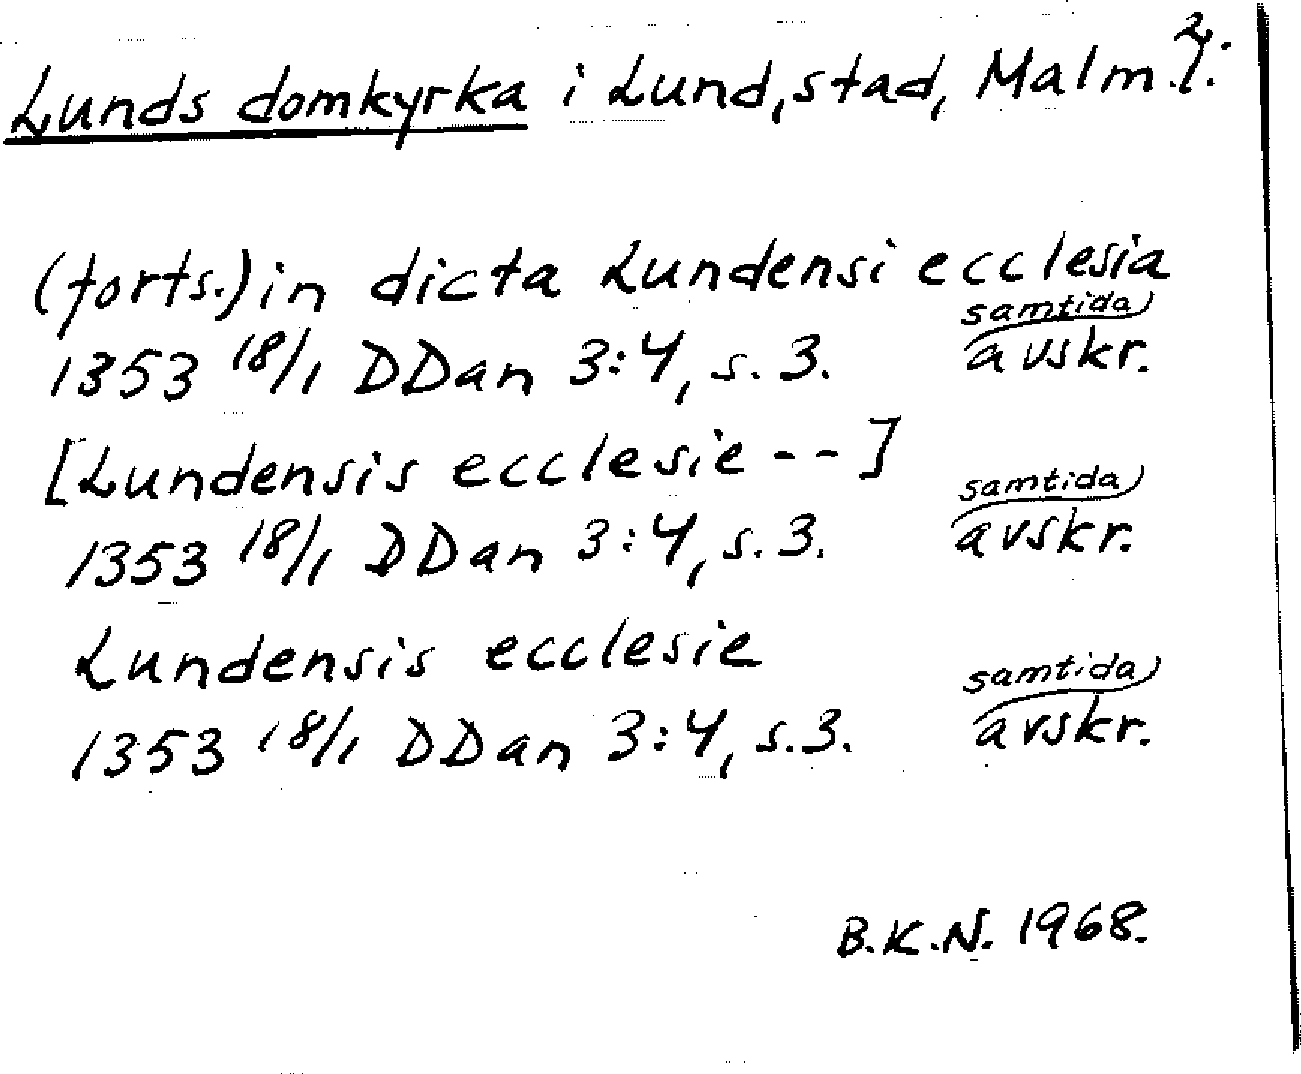 Lunds domkyrka i Lund, stad, Malm. l. 2.
(forts.) in dicta Lundensi ecclesia
samtida
1353 18/1 DDan 3:4, s. 3. avskr.
[Lundensis ecclesie --]
samtida
1353 18/1 DDan 3:4, s. 3. avskr.
Lundensis ecclesie
samtida
1353 18/1 DDan 3:4, s. 3. avskr.
B.K.N. 1968.